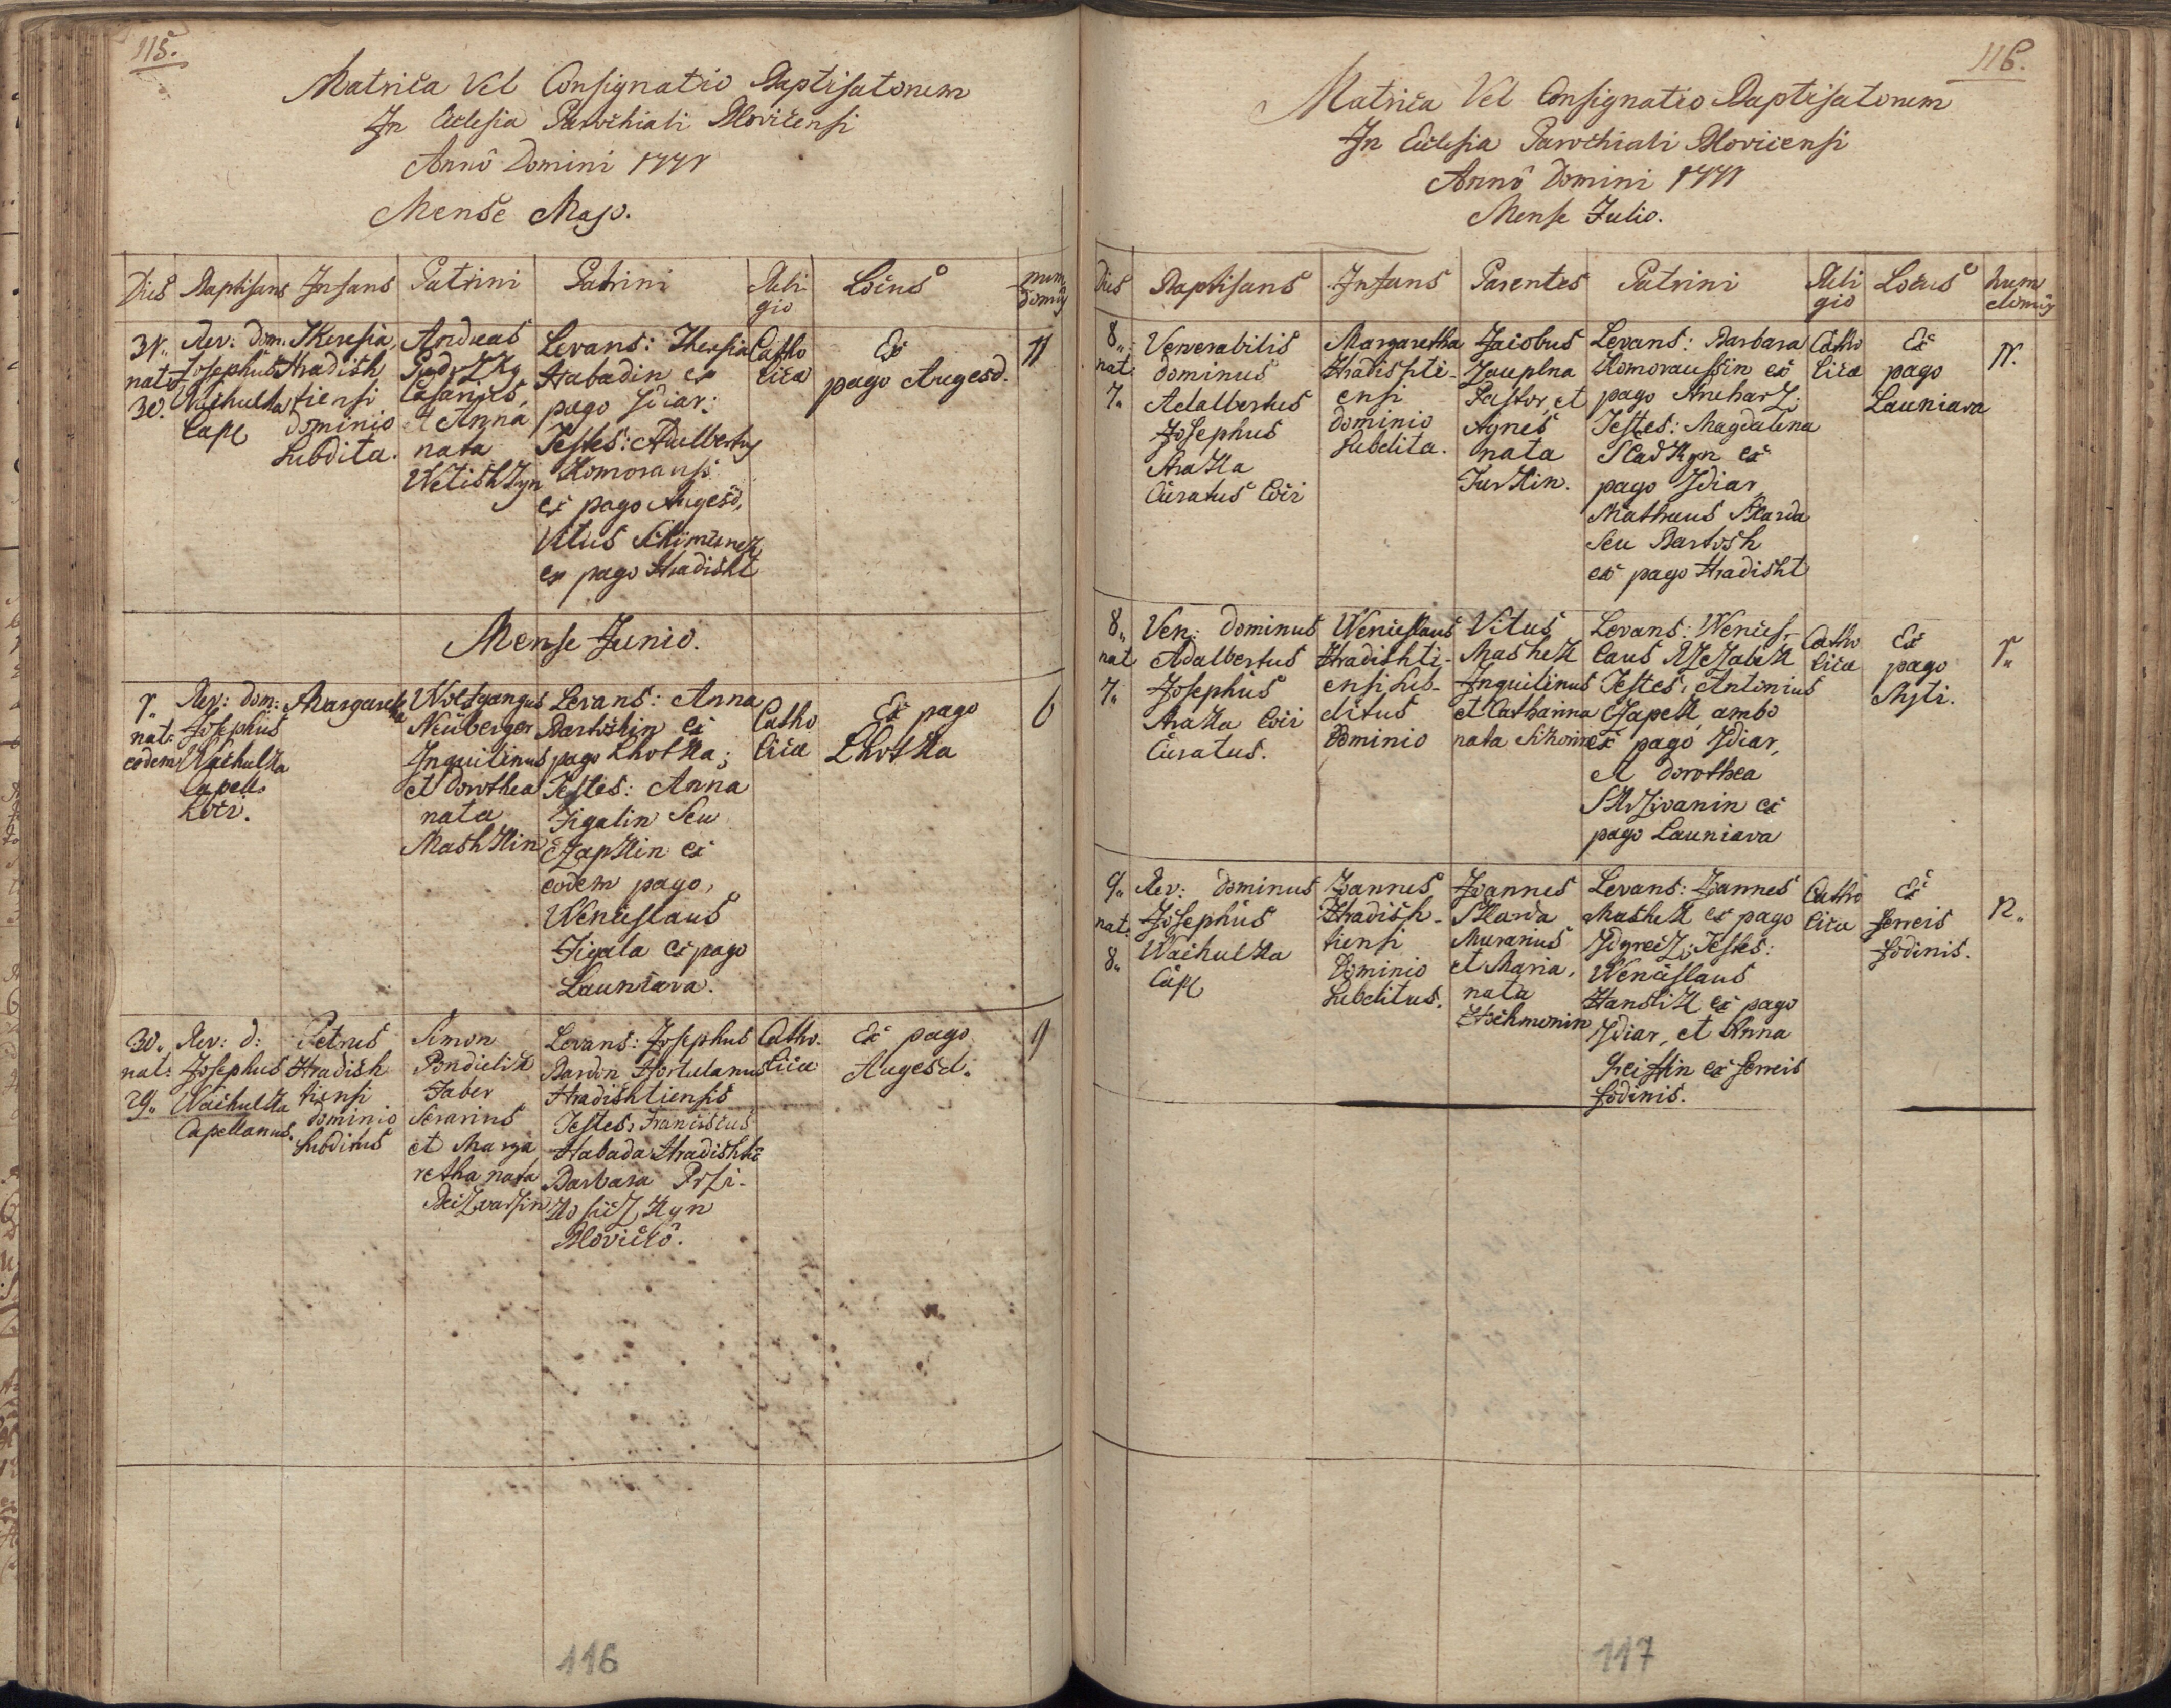 115.
Matrica Vel Consignatio Baptisatorum
In Eclesia Parochiali Blovicensi
Annô Domini 1771
Mense Majo.
Dies Baptisans Infans Patrini Patrini Reli-gio Locus num domûs
31.. nat. 30.
Rev: Dom.
Josephus
Wachulka
Capl
Theresia
Hradish
tiensi
dominio
Subdita.
Andreas
Casarius,
et Anna
nata
Levans: Theresia
Habadin ex
pago Zdiar:
Testes: Adalbertus
Komorauss
ex pago Augesd,
Vitus
ex pago Hradisht
Catho
lica
Ex
pago Augesd.
11
Mense Junio.
1..
nat:
eodem
Rev: dom:
Josephus
Wachulka
Capell:
Loci.
Margaretha
Wolfgangus
Neuberger
Inquilinus
et Dorothea
nata
Mashkin
Levans: Anna
Bartoshin ex
pago Lhotka;
Testes: Anna
Figalin Seu
Czapkin ex
eodem pago,
Wenceslaus
Figala ex pago
Launiava.
Catho
lica
Ex pago
Lhotka
6
30.
nat:
29..
Rev: d:
Josephus
Wachulka
Capellanus.
Petrus
Hradish
tiensi
dominio
Subditus
Simon
Pondielik
Faber
Serarius
et Marga
retha nata
Levans: Josephus
Bardon Hortulanus
Hradishtiensis
Testes: Franciscus
Habada Hradishti
Barbara
Blovicô.
Catho-
lica
Ex pago
Augesd.
9
116
116.
Matrica Vel Consignatio Baptisatorum
In Eclesia Parochiali Blovicensi
Annô Domini 1771
Mense Julio.
Dies Baptisans Infans Parentes Patrini Reli gio Locus Num domûs
8..
nat
7..
Venerabilis
dominus
Adalbertus
Josephus
Hratka
Curatus Loci
Margaretha
Hradishti-
ensi
dominio
Subdita.
Jacobus
Zauplna
Pastor, et
Agnes
nata
Jurkin.
Levans: Barbara
Komoraussin ex
pago
Testes: Magdalena
Sladkyn ex
pago Zdiar,
Mathaeus Skarda
Seu Bartosh
ex pago Hradisht
Catho
lica
Ex
pago
Launiava
11.
8..
nat
7..
Ven: Dominus
Adalbertus
Josephus
Hratka Loci
Curatus.
Wenceslaus
Hradishti-
ensi Sub-
ditus
Dominio
Vitus
Mashek
Inquilinus
et Catharina
nata
Levans: Wences-
laus Rzezabek
Testes: Antonius
Czapek ambo
ex pago Zdiar,
et Dorothea
Skrzivanin ex
pago Launiava
Catho
lica
Ex
pago
1..
9..
nat:
8..
Rev: Dominus
Josephus
Wachulka
Capl
Joannes
Hradish-
tiensi
Dominio
Subditus.
Joannes
Skarda
Murarius
et Maria,
nata
Levans: Joannes
Mashek ex pago
Testes:
Wenceslaus
Hanslik ex pago
Zdiar, et Anna
ex Ferreis
Fodinis.
Catho
lica
Ex
Ferreis
Fodinis.
12..
117